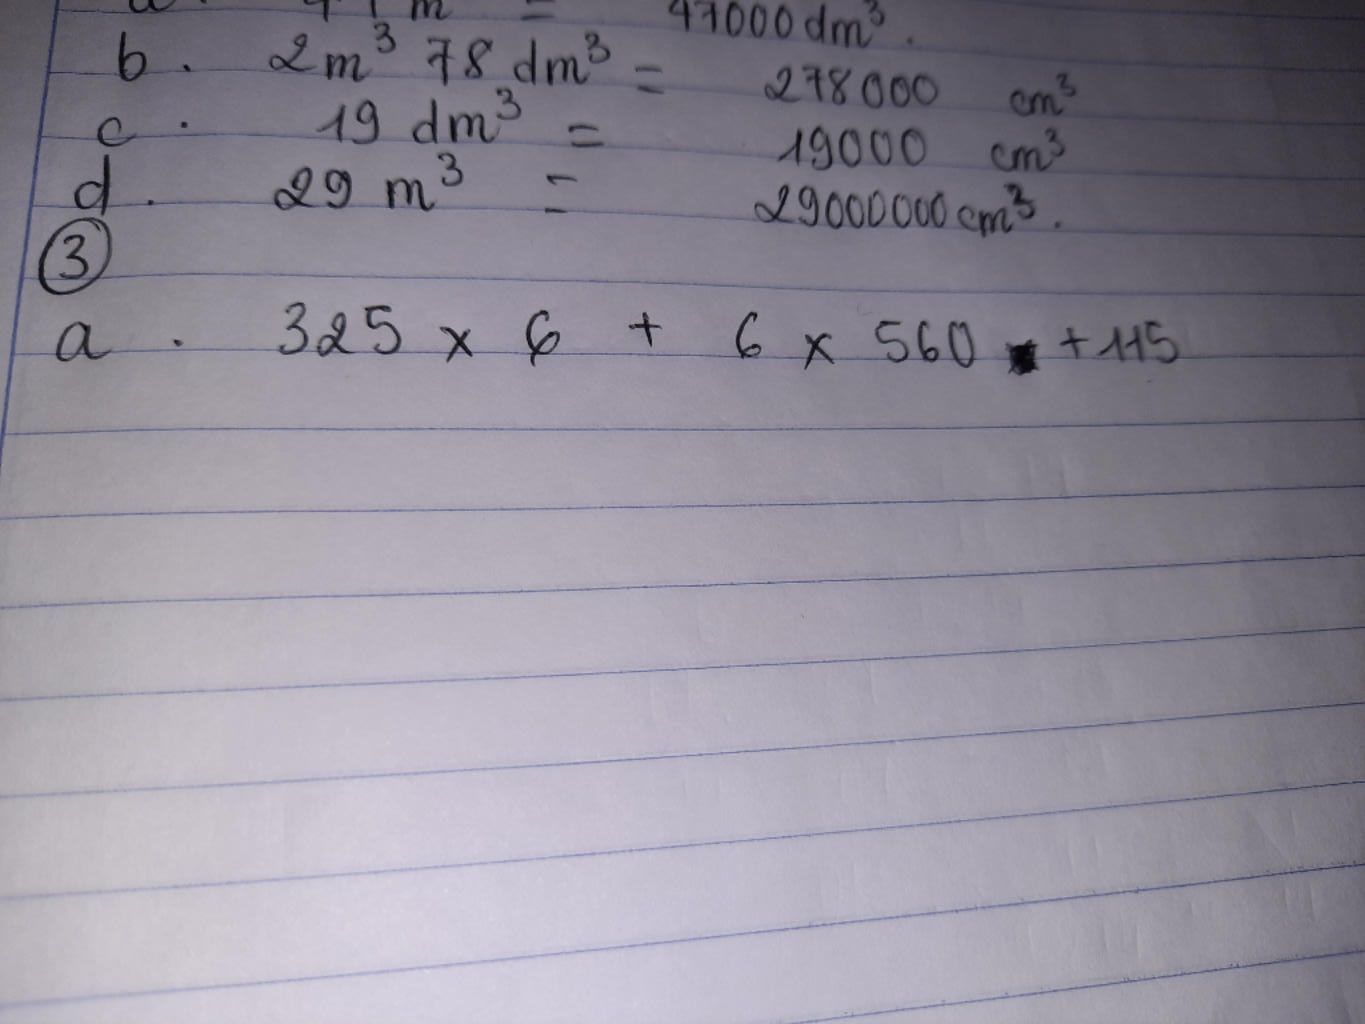 m = 47000 dm³.
b. 2m³ 78 dm³ = 278000 cm³
c. 19 dm³ = 19000 cm³
d. 29 m³ = 29000000 cm³.
③
a. 325 x 6 + 6 x 560 + 115